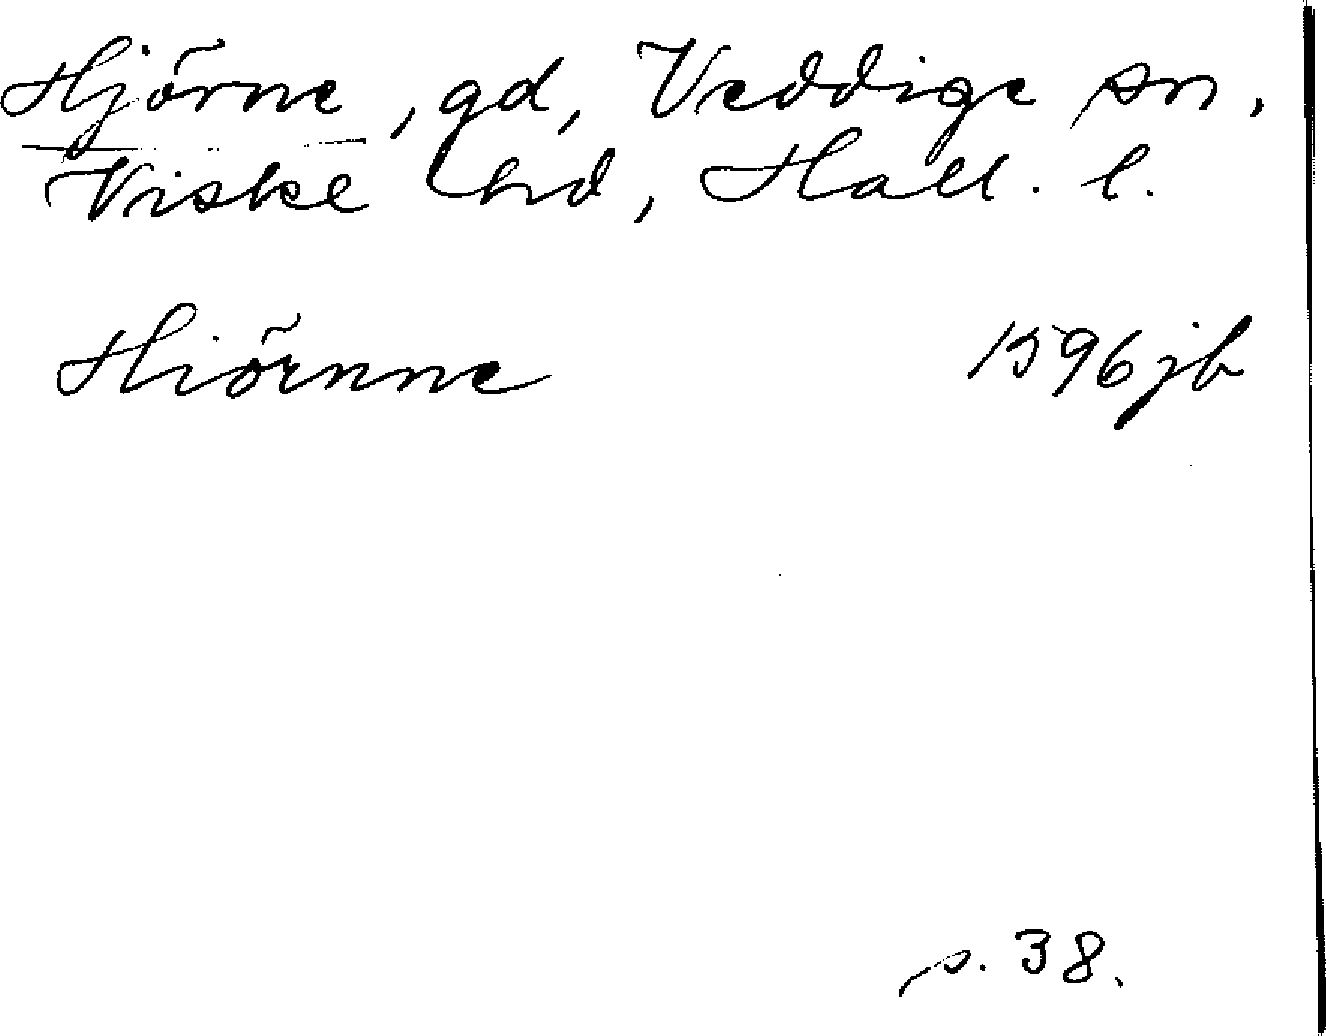 Hjörne, gd, Veddige sn,
Viske hd, Hall. l.
Hiörnne 1596 jb
s. 38.